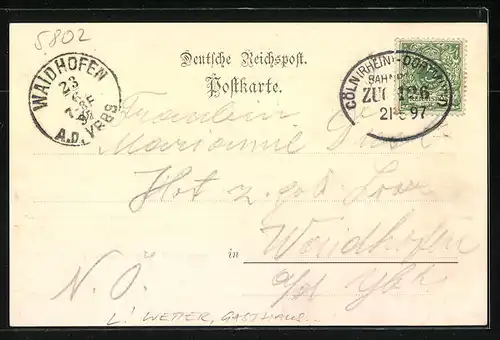 5802
Deutsche Reichspost.
Postkarte.
WAIDHOFEN
A.D. YBBS
23
CÖLN (RHEIN)-DORTM
BAHNPOST
ZUG 126
21 97
Fräulein
Marianne
Hot z. gold.
in Waidhofen
a/d Ybbs
N.Ö.
L! WETTER, GASTHAUS...